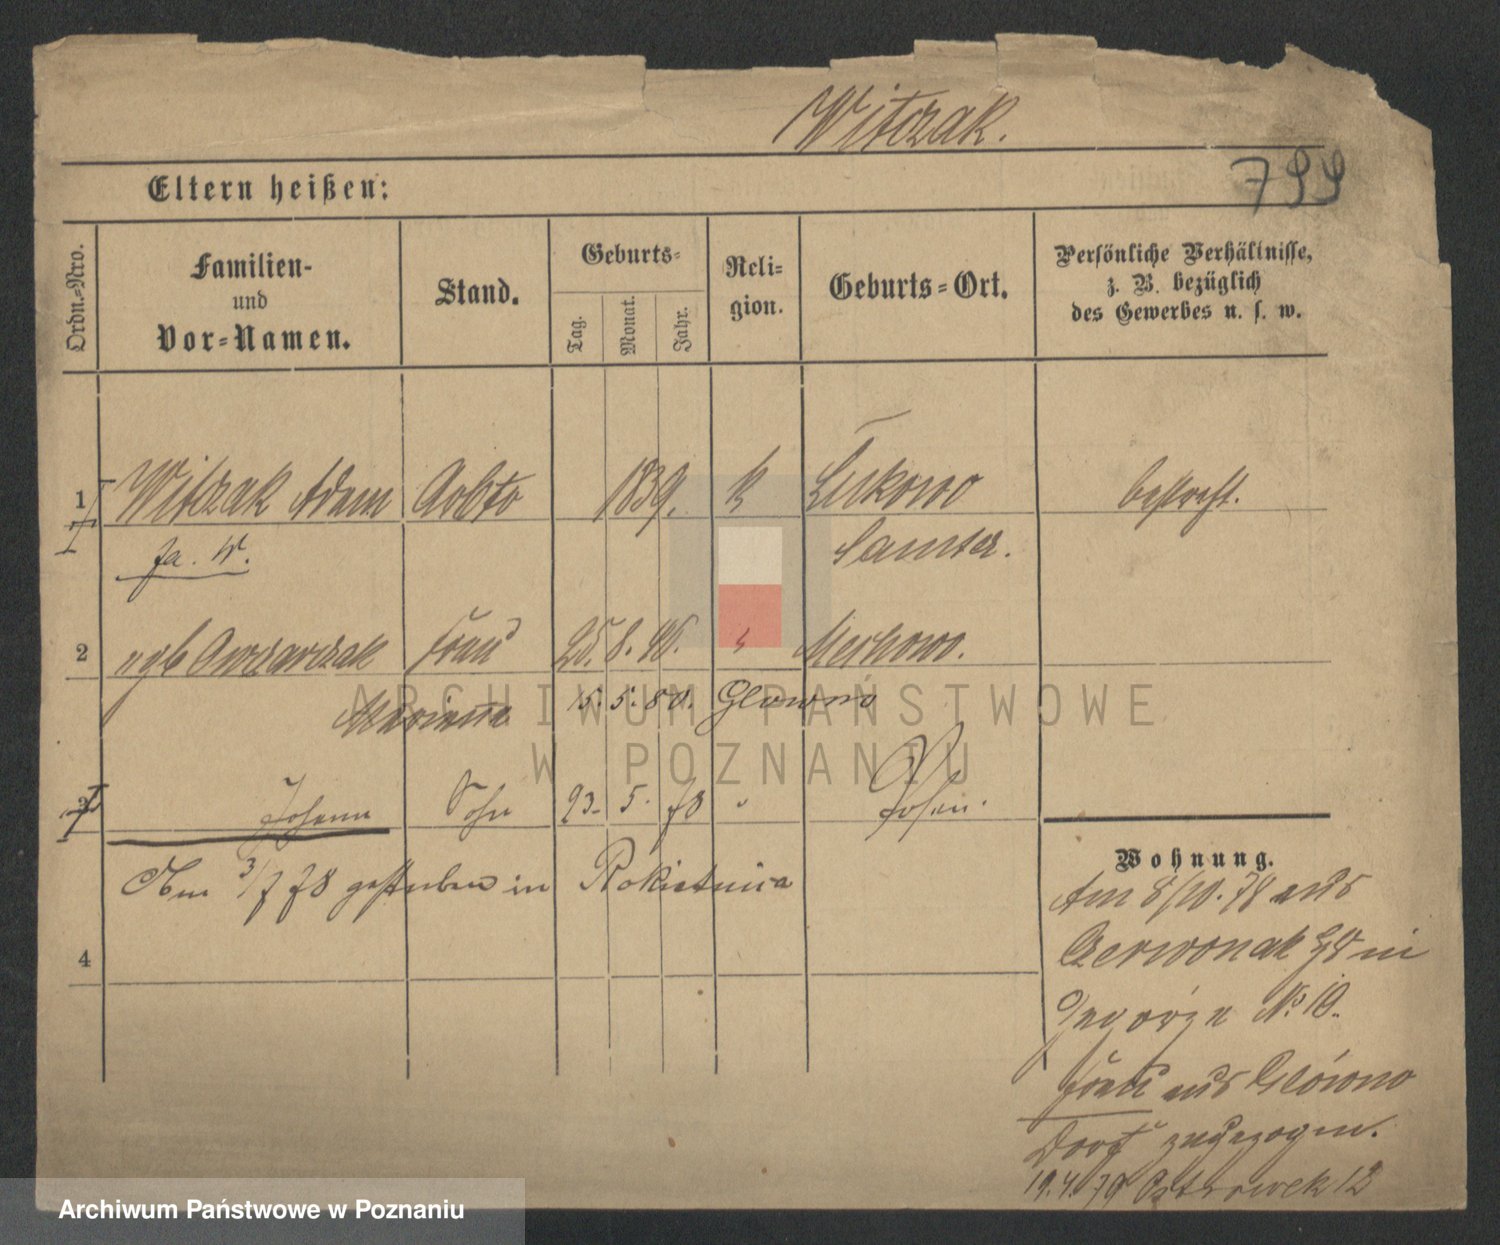 Witczak.
799
Eltern heißen:
Ordn.-Nro.
Familien-
und
Vor-Namen.
Stand.
Geburts-
Tag.
Monat.
Jahr.
Reli-
gion.
Geburts-Ort.
Persönliche Verhältnisse,
z. B. bezüglich
des Gewerbes u. s. w.
1 Witczak Adam 1839. k Lukowo bestraft.
fa. W. Samter.
2 Owczarczak Frau 25. 8. 46. Merkowo.
Marianna 15. 5. 80. Glowno
3 Johann Sohn 23. 5. 78 Posen.
Am 3/7 78 gestorben in Rokietnica
4
Wohnung.
Am 8/10. 78 aus
Czerwonak in
No. 10.
Frau aus Glówno
Dorf zugezogen.
19.4.79 Ostrowek 12
ARCHIWUM PAŃSTWOWE
W POZNANIU
Archiwum Państwowe w Poznaniu